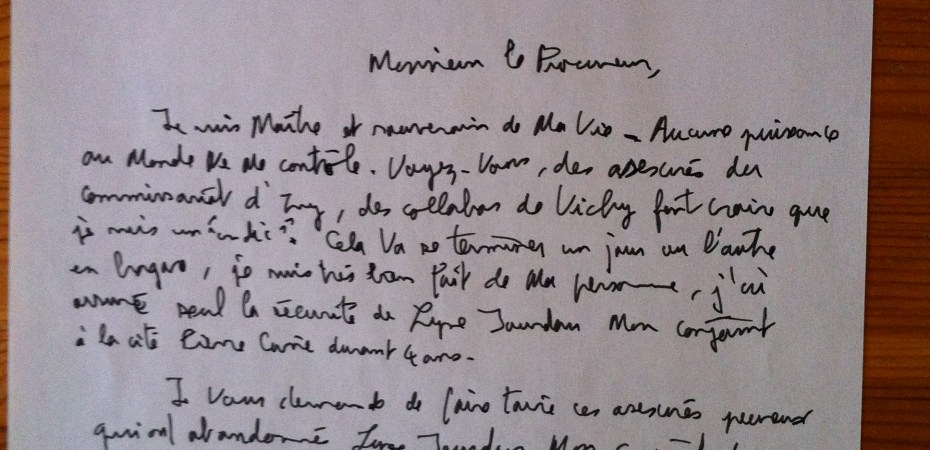 Monsieur le Procureur,
Je suis Maître et souverain de Ma Vie - Aucune puissance
au Monde Ne Me contrôle. Voyez-Vous, des
commissariat d'Ivry, des collabos de Vichy font croire que
je suis un "indic". Cela Va se terminer un jour ou l'autre
en bagare, je suis très bien fait de Ma personne, j'ai
assumé seul la sécurité de Jourdan Mon conjoint
à la cité Pierre Curie durant 4 ans -
Je Vous demande de faire taire ces
qui ont abandonné Jourdan Mon